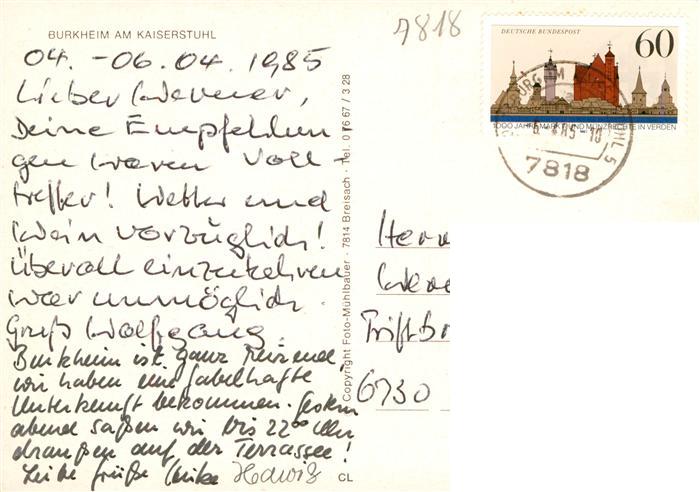 BURKHEIM AM KAISERSTUHL
7818
04. -06.04.1985
Lieber Werner,
Deine Empfehlun
gen waren Voll-
treffer! Wetter und
Wein vorzüglich!
Überall einzukehren
war unmöglich.
Gruß Wolfgang.
Burkheim ist ganz reizend,
wir haben eine fabelhafte
Unterkunft bekommen. Gestern
abend saßen wir bis 22⁰⁰ Uhr
draußen auf der Terrasse!
Liebe Grüße Heike Hedwig
Copyright Foto-Mühlbauer · 7814 Breisach · Tel. 0 76 67 / 3 28
CL
DEUTSCHE BUNDESPOST
60
1000 JAHRE MARKT- UND MÜNZRECHTE IN VERDEN
7818
Herrn
Wer
Triftbr
6730